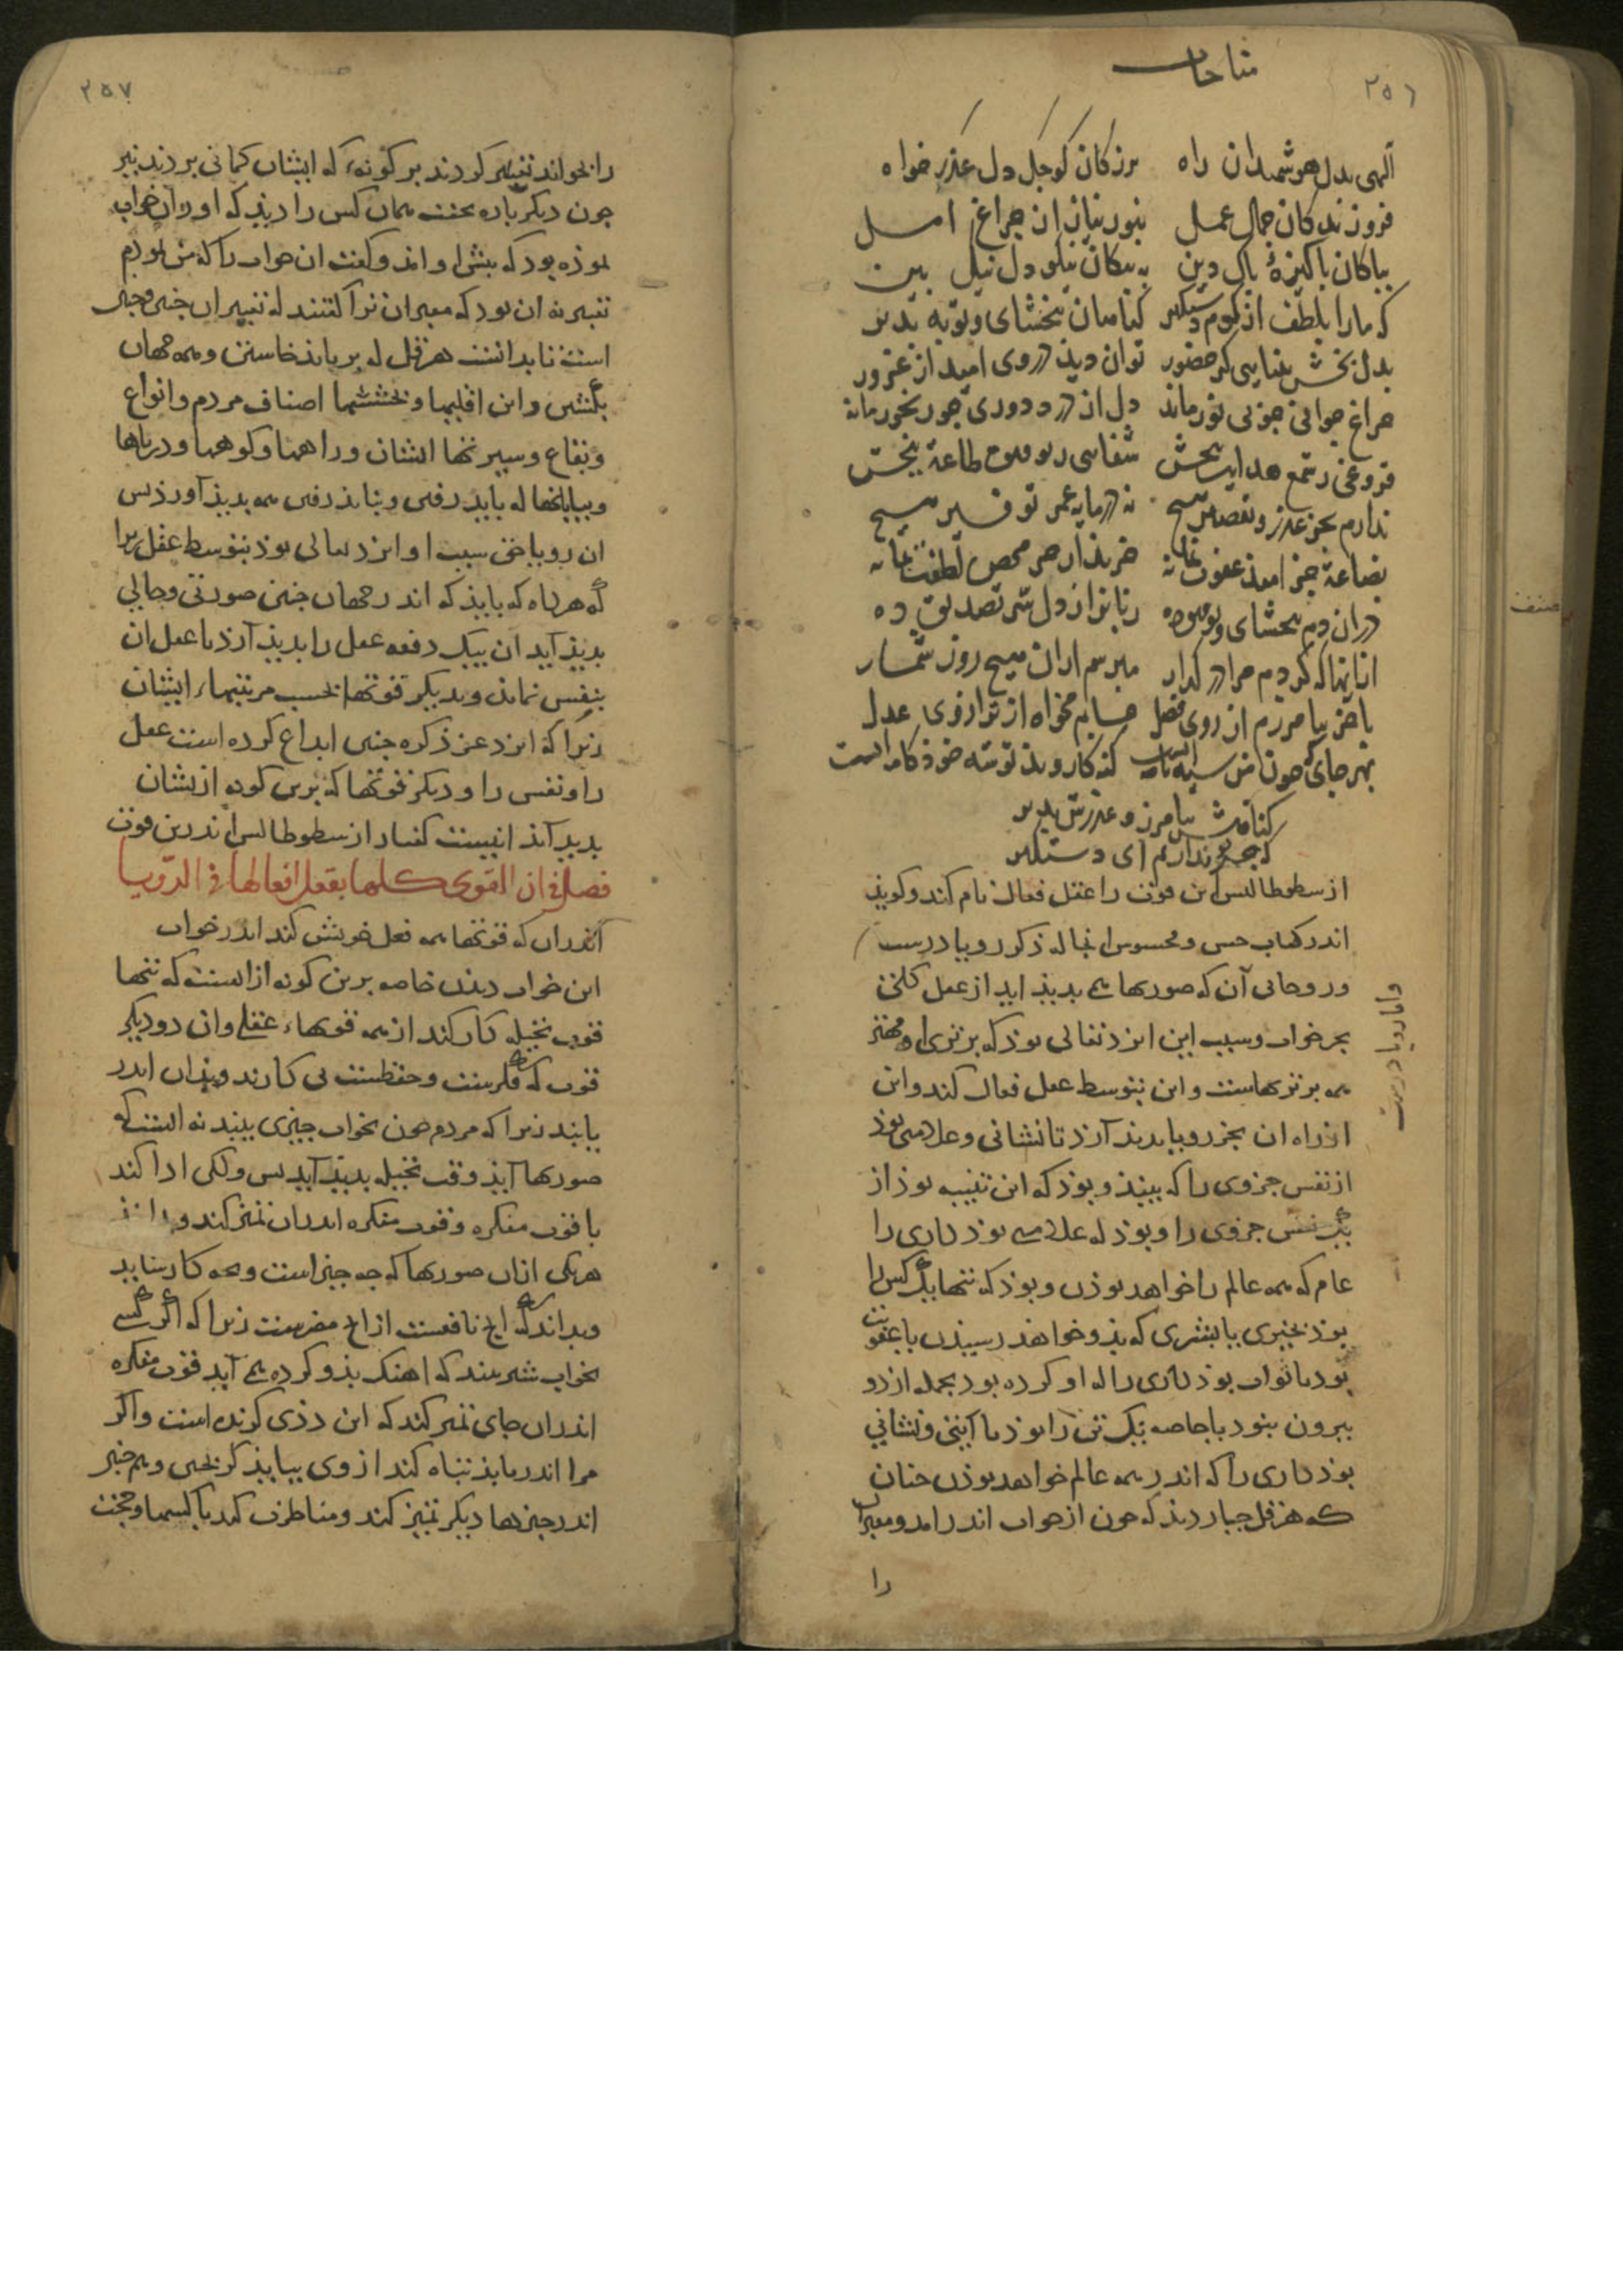 مناجات
۲۵٦
الهی بدل هوشمندان راه بزرکان کوجک دل عذر خواه
فروزندکان جمال عمل بنور نیاز از جراغ امل
بپاکان پاکیزهٔ پاک دین به نیکان نیکو دل نیک بین
که ما را بلطف از کرم دستکیر کناهان ببخشای و توبه بذیر
بدل بخش بینایی کز حضور توان دید در روی امید از غرور
جراغ جوانی جو بی نور ماند دل از درد دوری جو رنجور ماند
فروغی ز شمع هدایت ببخش شفایی ز توفیق طاعت ببخش
ندارم بجز عذر و تقصیر هیج نه در مایه عمر توفیر هیج
بضاعة جز امید عفوت نه خریدار جز محض لطفت نه
در ان دم ببخشای و توفیق ده زبانرا ز دل تصدیق ده
از انها که کردم مرا در کذار مبرسم از ان هیج روز شمار
بیامرزم از روی فضل حسابم مخواه از ترازوی عدل
بهر جای جون من سیه نامه است کنه کار و بد توشه خود کامه است
کناهش بیامرز و عذرش بذیر
که جز تو ندارم ای دستکیر
ارسطوطالیس این قوت را عقل فعال نام کند و کوید
اندر کتاب حس و محسوس انجا که ذکر رویا درست
و روحانی آن که صورتها همی بدید اید از عقل کلی
واما رویا درست
بجز خواب و سبب این ایزد تعالی بود که برتری او مهتر
همه برتریهاست و این بتوسط عقل فعال کند و این
از راه ان بجز رویا بدید آرد تا نشانی و علامتی بود
از نفس جزوی را که بیند و بود که این تنبیه بود از
یک نفس جزوی را و بود که علامتی بود کاری را
عام که همه عالم را خواهد بودن و بود که تنها یک کس را
بود بخیری یا بشری که بدو خواهد رسیدن یا عقوبت
بود یا ثواب بود کاری را که او کرده بود بجمله ازدو
بیرون نبود یا خاصه یک تن را بود یا آیتی و نشانی
بود کاری را که اندر همه عالم خواهد بودن جنان
که هرقل جبار دید که جون از خواب اندر امد و معبران
را
۲۵۷
را بخواند تعبیر کردند بر کونهٔ که ایشان کمانی بردند نیز
جون دیکر باره بخفت همان کس را دید که او را آن خواب
نموده بود که بیش او امد و کفت ان خواب را که من نمودم
تعبیر نه ان بود که معبران ترا کفتند که تعبیر ان جنین و جنین
است تا بدانست هرقل که بر باید خاستن و همه جهان
بکشتن و این اقلیمها و بخششها اصناف مردم و انواع
و بقاع و سیرتها ایشان و راهها و کوهها و دریاها
و بیابانها که باید رفتن و نباید رفتن همه بدید آورد بس
ان رویا حق سبب او ایزد تعالی بود بتوسط عقل زیرا
که هرکاه که بباید که اندر جهان جنین صورتی و حالی
بدید آید ان بیک دفعه عقل را بدید آرد تا عقل ان
بنفس نماید و بدیکر قوتها بحسب مرتبهاء ایشان
زیرا که ایزد عز ذکره جنین ابداع کرده است عقل
را و نفس را و دیکر قوتها که برین کونه از یشان
بدید آید اینست کفتار ارسطوطالیس اندرین قوت
فصل فی ان القوی کلها یفعل افعالها فی الرّویا
اندر ان که قوتها همه فعل خویش کند اندر خواب
این خواب دیدن خاصه برین کونه از انست که تنها
قوت تخیله کار کند از همه قوتهاء عقلی و ان دو دیکر
قوت که فکرست و حفظست بی کارند و بدان اندر
یابند زیرا که مردم جون بخواب جیزی بیند نه انست که
صورتها آید و قوت تخیله بدید آید بس ولکن ادا کند
با قوت مفکره و قوت مفکره اندر ان تمیز کند و بداند
هر یکی از ان صورتها که جه جیز است و بجه کار شاید
و بداند که این نافعست از ان مضرست زیرا که اکر کسی
بخواب شیر بیند که اهنک بدو کرده همی آید قوت مفکره
اندر ان جای تمیز کند که این ددی کزنده است و اکر
مرا اندر یابد تباه کند از وی بباید کریختن و هم جنین
اندر جیزها دیکر تمیز کند و مناظرت کند با کسها و حجت